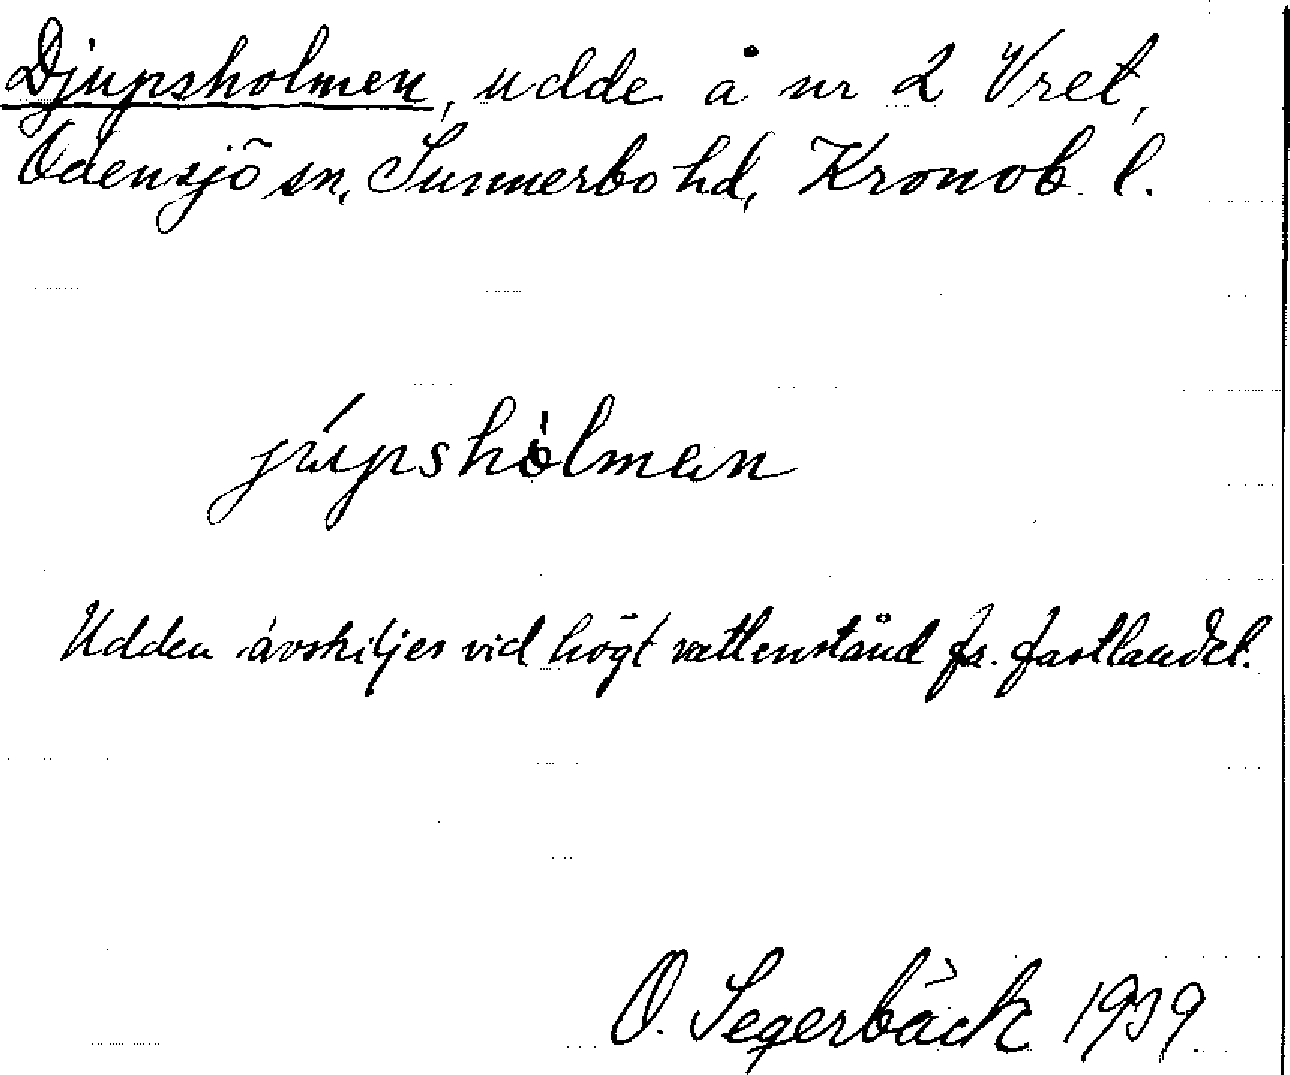 Djupsholmen, udde å nr 2 Vret,
Odensjö sn, Sunnerbo hd, Kronob. l.
júpshòlmen
Udden avskiljes vid högt vattenstånd fr. fastlandet.
O. Segerbäck 1939.